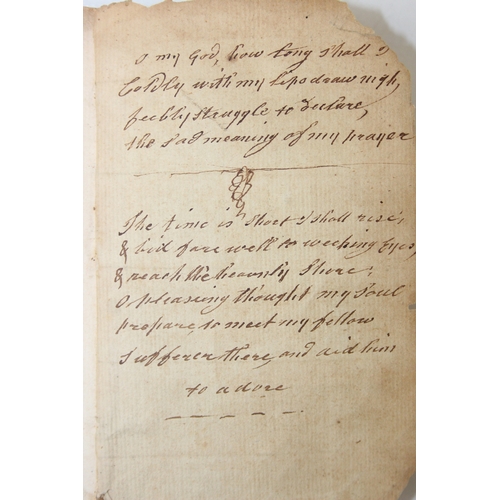 O my God, how long shall I
Coldly with my lips draw nigh,
feebly struggle to declare,
the sad meaning of my prayer
The time is short I shall rise,
& bid fare well to weeping Eyes,
& reach the heavenly Shore;
O pleasing thought my Soul
prepare, to meet my fellow
Sufferer there, and aid him
to adore